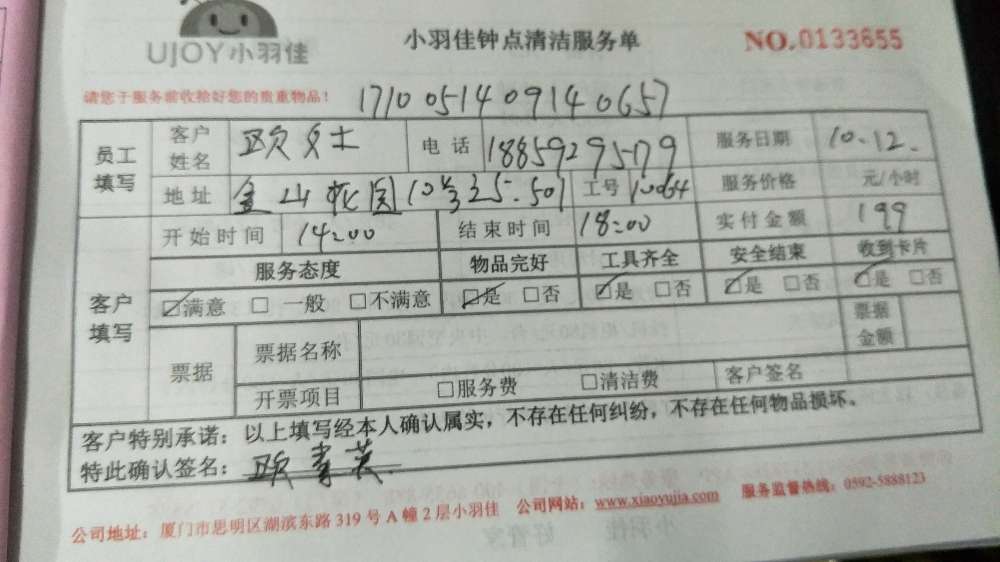 UJOY小羽佳
小羽佳钟点清洁服务单
NO.0133655
请您于服务前收拾好您的贵重物品!
1710051409140657
员工填写 客户姓名 欧女士 电话 18859295179 服务日期 10.12.
地址 金山 10号 35.501 工号 10064 服务价格 元/小时
开始时间 14:00 结束时间 18:00 实付金额 199
客户填写 服务态度 物品完好 工具齐全 安全结束 收到卡片
☑满意 □ 一般 □不满意 ☑是 □否 ☑是 □否 ☑是 □否 ☑是 □否
票据 票据名称 票据金额
开票项目 □服务费 □清洁费 客户签名
客户特别承诺:以上填写经本人确认属实,不存在任何纠纷,不存在任何物品损坏。
特此确认签名:欧秀英
公司地址:厦门市思明区湖滨东路 319 号 A 幢 2 层小羽佳 公司网站:www.xiaoyujia.com 服务监督热线:0592-5888123